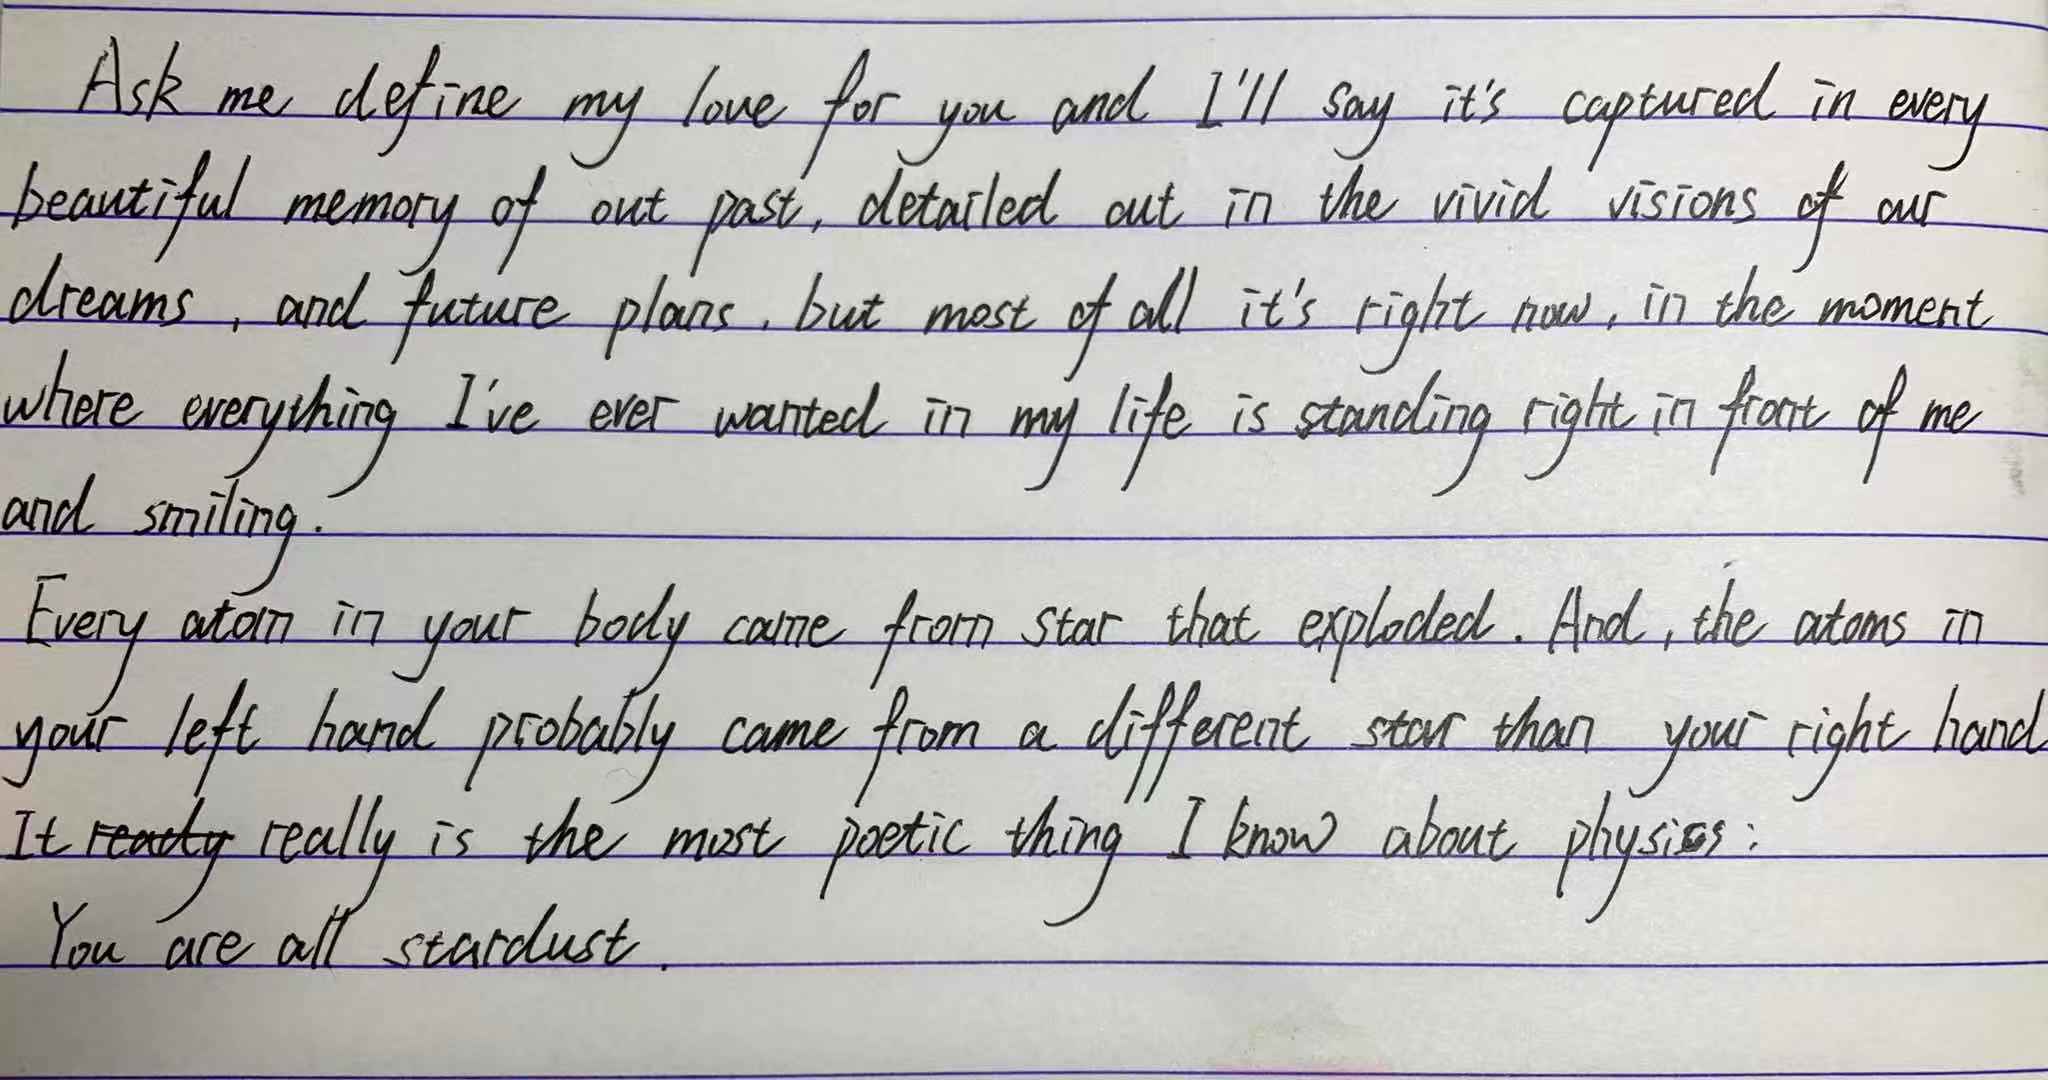 Ask me define my love for you and I'll say it's captured in every
beautiful memory of out past, detailed out in the vivid visions of our
dreams, and future plans, but most of all it's right now, in the moment
where everything I've ever wanted in my life is standing right in front of me
and smiling.
Every atom in your body came from star that exploded. And, the atoms in
your left hand probably came from a different star than your right hand
It ready really is the most poetic thing I know about physics:
You are all stardust.